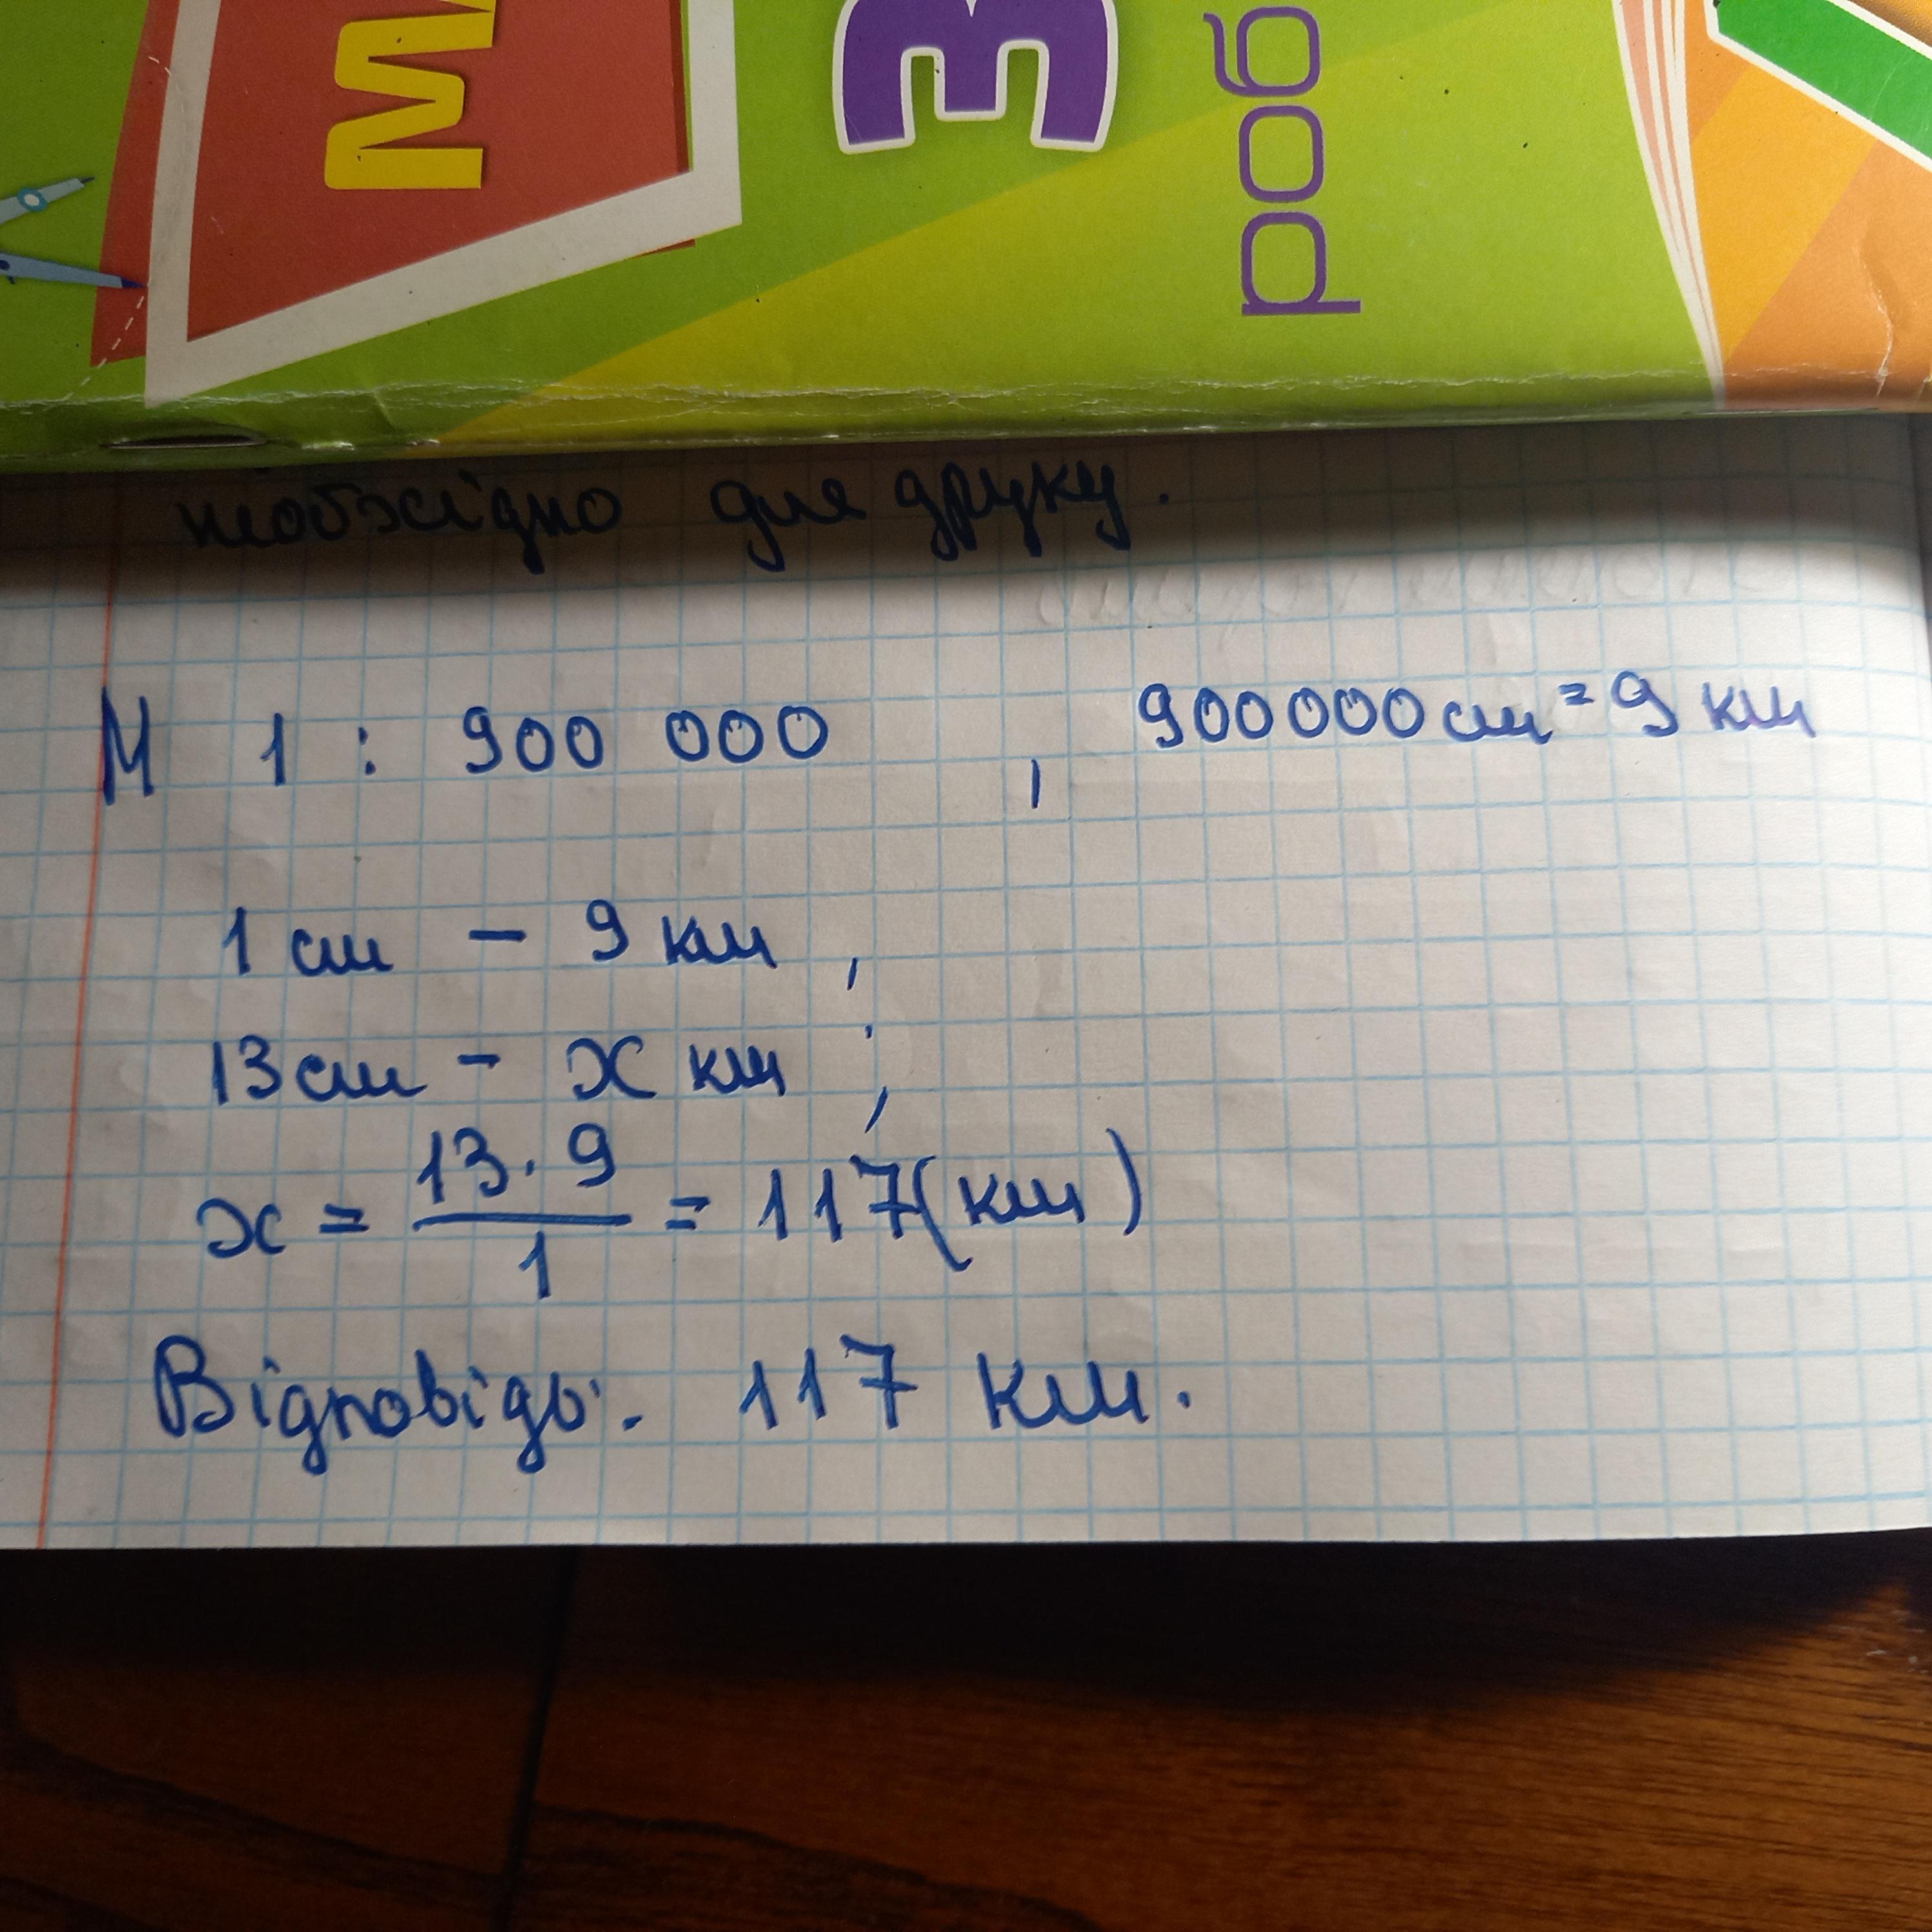 М
З
роб
необхідно для друку.
М 1 : 900 000 , 900000 см = 9 км
1 см - 9 км ,
13 см - x км ;
x = 13 · 9 / 1 = 117 (км)
Відповідь: 117 км.